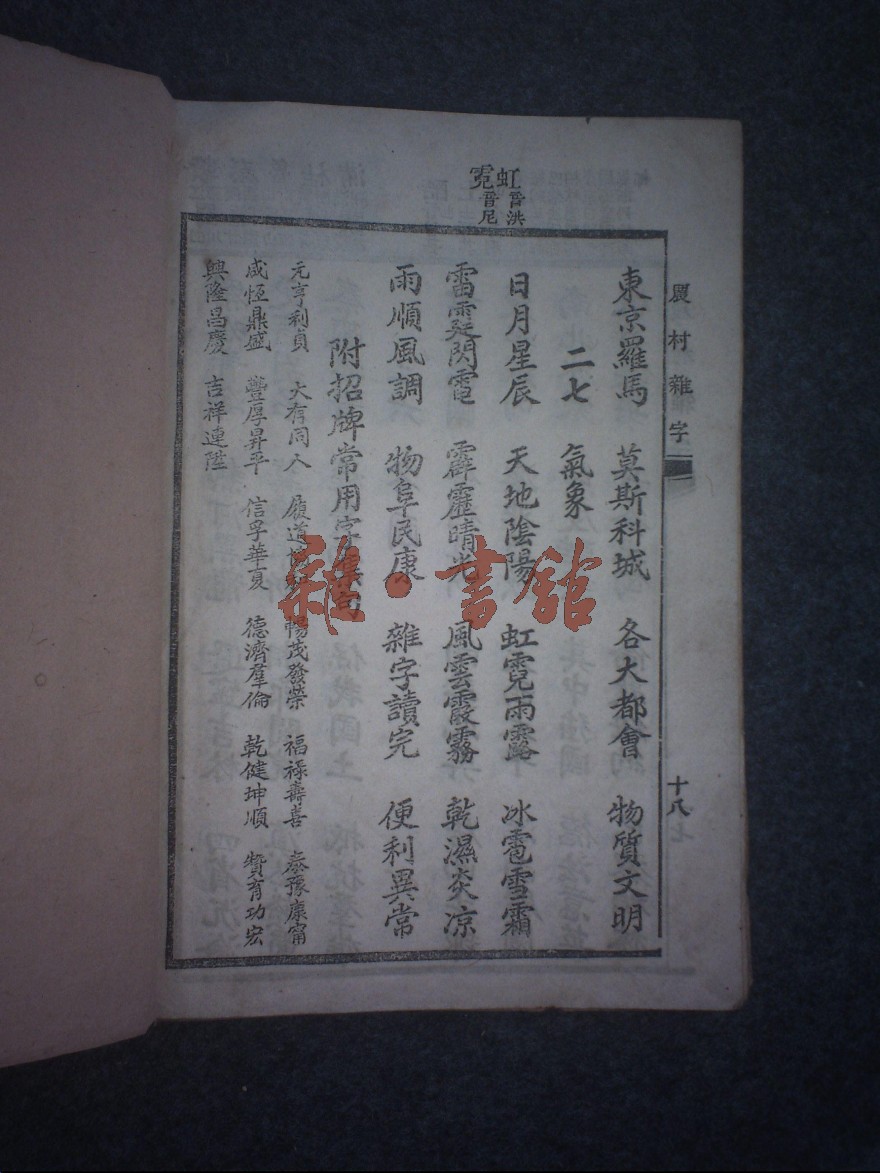 農村雜字
十八
虹音洪
霓音尼
東京羅馬 莫斯科城 各大都會 物質文明
二七 氣象
日月星辰 天地陰陽 虹霓雨露 冰雹雪霜
雷霆閃電 霹靂晴光 風雲霞霧 乾濕炎凉
雨順風調 物阜民康 雜字讀完 便利異常
附招牌常用字集句
元亨利貞 大有同人 履道 暢茂發榮 福祿壽善 泰豫康甯
咸恆鼎盛 豐厚昇平 信孚華夏 德濟羣倫 乾健坤順 贊育功宏
興隆昌慶 吉祥連陞
雜·書館